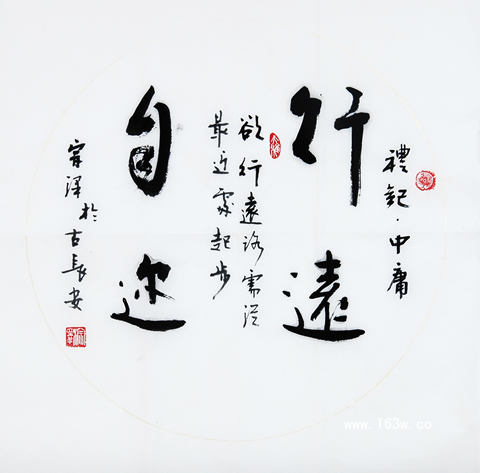 禮記·中庸
行遠
欲行遠路需從
最近處起步
自迩
宗澤於古長安
www.163w.co